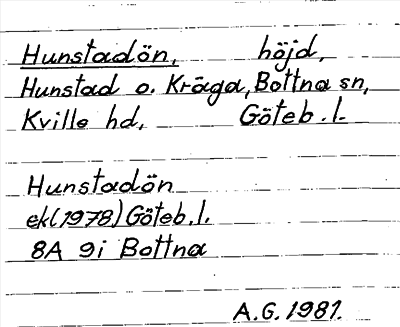 Hunstadön, höjd,
Hunstad o. Kråga, Bottna sn,
Kville hd, Göteb. l.
Hunstadön
ek (1978) Göteb. l.
8A 9i Bottna
A.G. 1981.